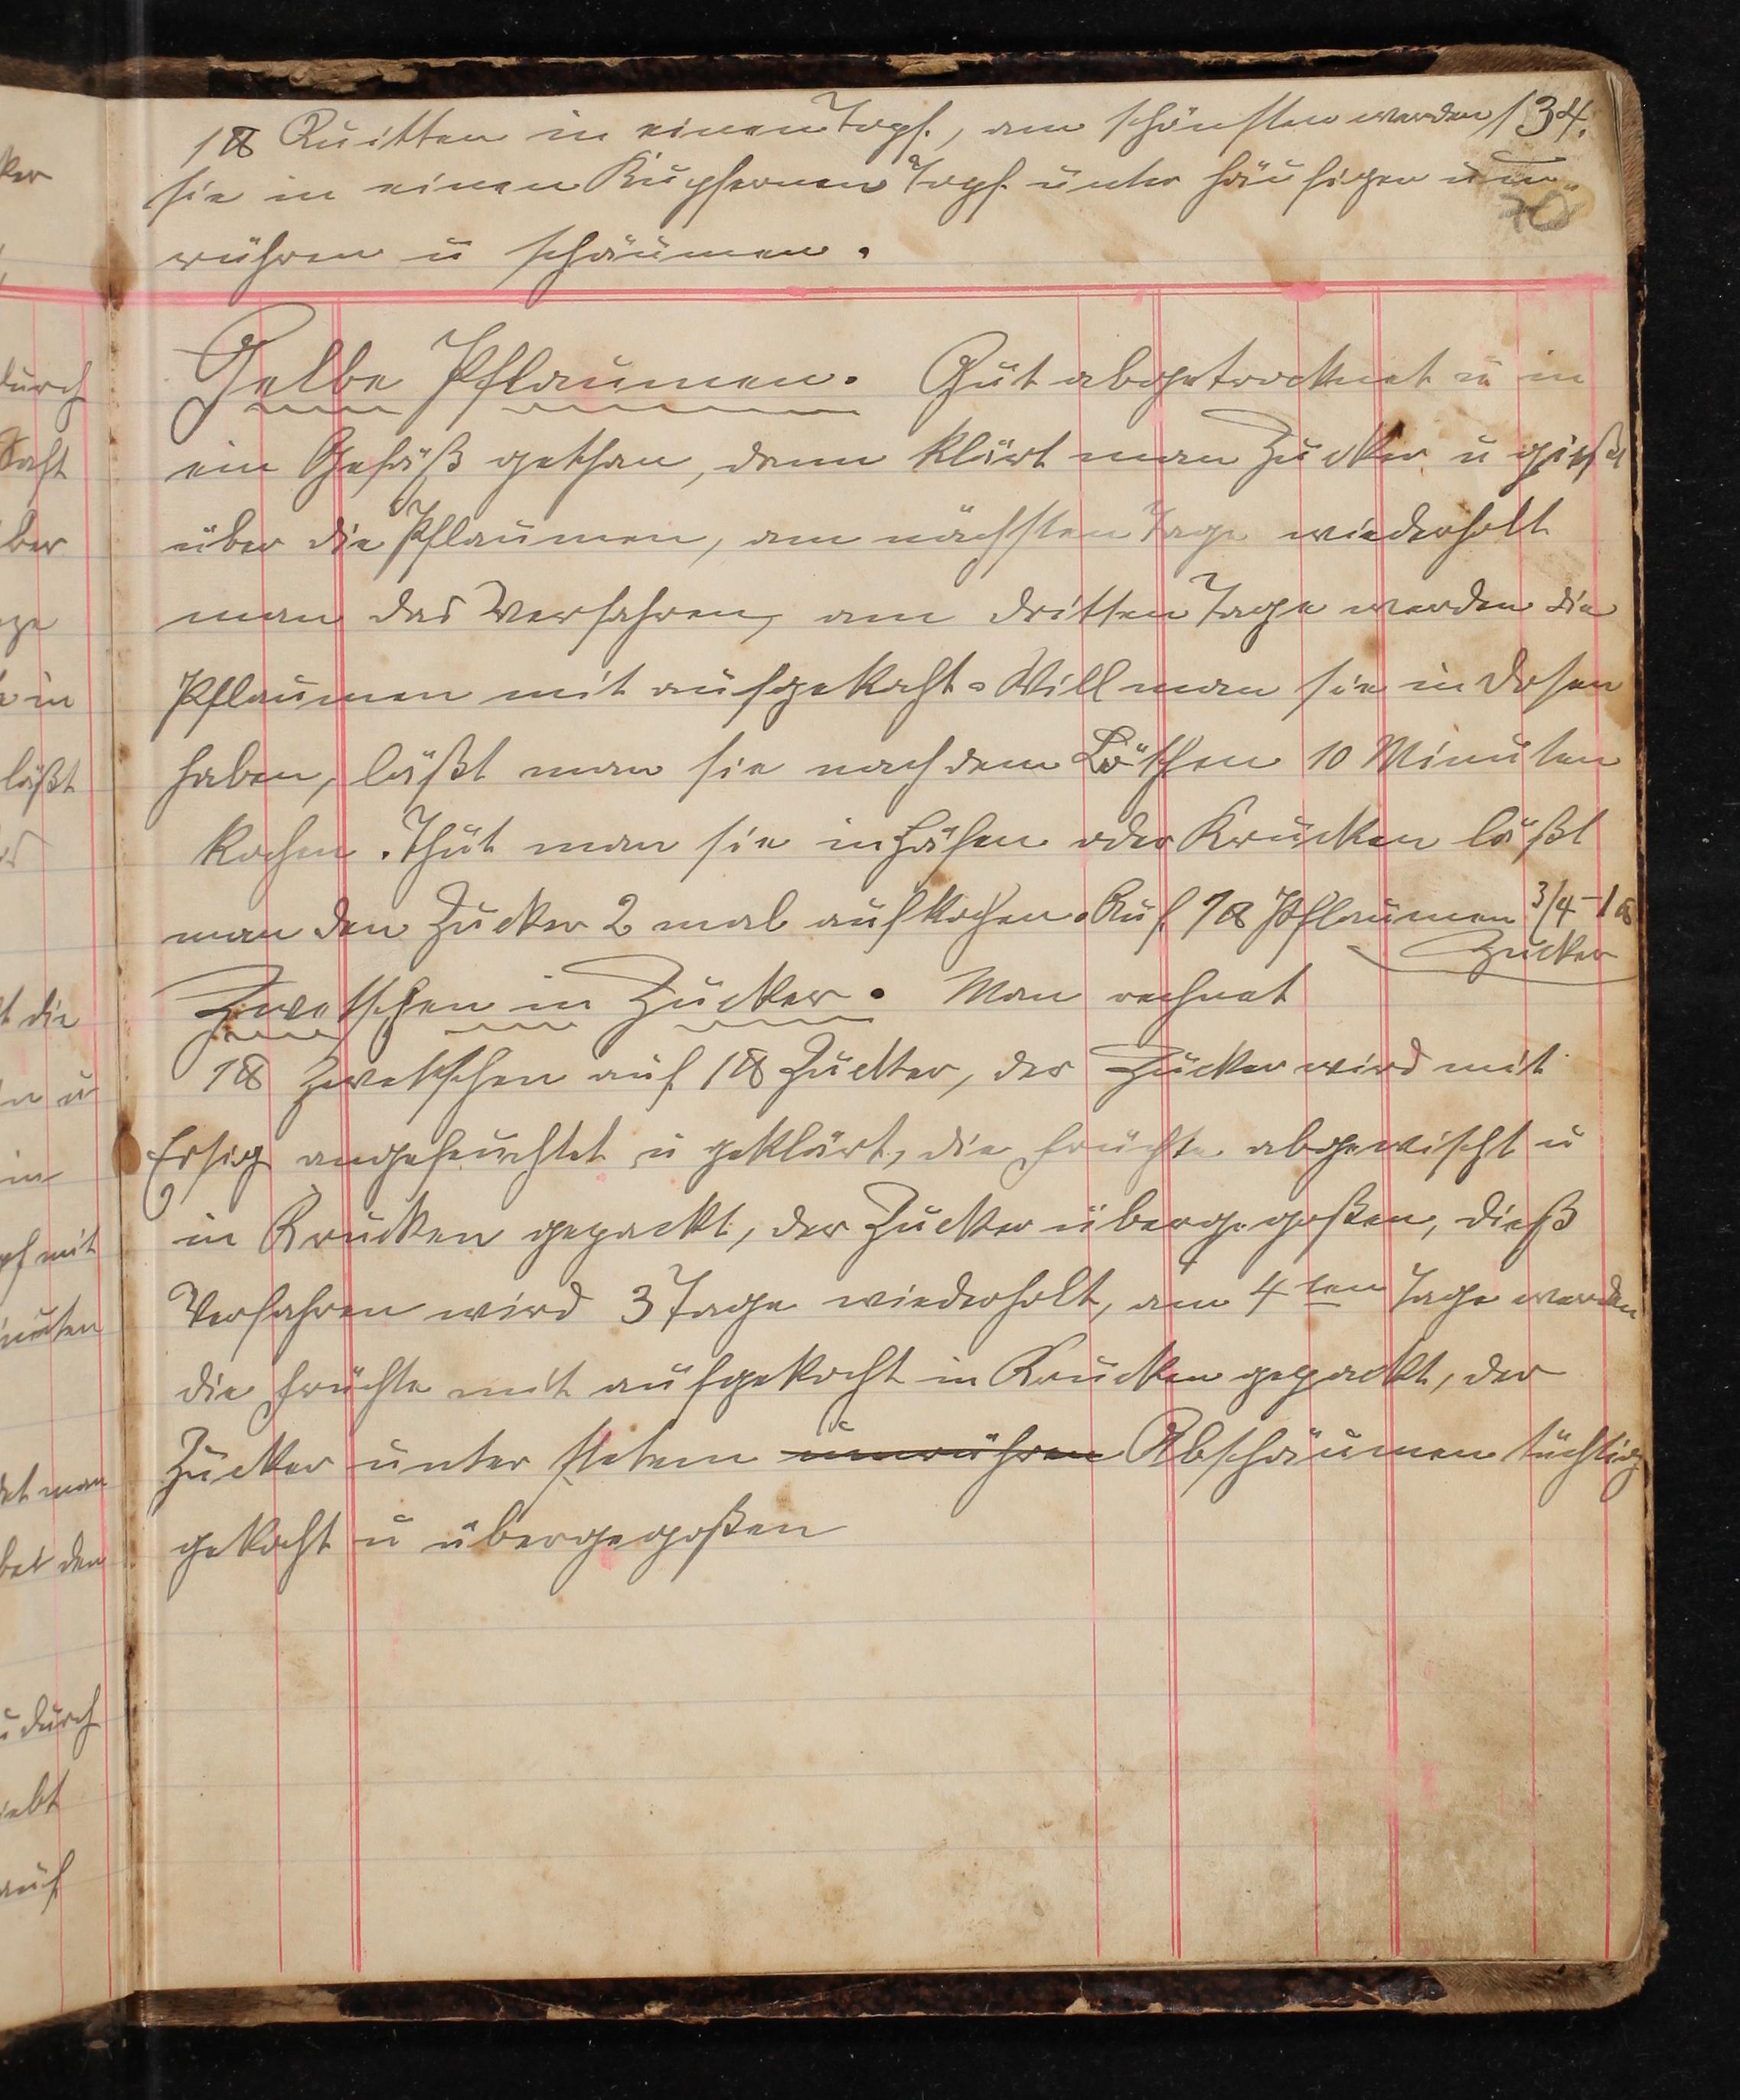 1 ℔ Quitten in einen Topf., am schönsten werden 134.
sie in einen Kupfernen Topf. unter häufigen um
70
rühren u schäumen.
Gelbe Pflaumen. Gut abgetrocknet u in
ein Gefäß gethan, dann klärt man Zucker u gießt
über die Pflaumen, am nächsten Tage wiederholt
man das Verfahren, am dritten Tage werden die
Pflaumen mit aufgekocht. Will man sie in Dosen
haben, läßt man sie nach dem Löthen 10 Minuten
kochen. Thut man sie in Häfen oder Krucken läßt
man den Zucker 2 mal aufkochen. Auf 1 ℔ Pflaumen 3/4 - 1 ℔
Zucker
Zwetschen in Zucker. Man rechnet
1 ℔ Zwetschen auf 1 ℔ Zucker, der Zucker wird mit
Essig angefeuchtet u geklärt, die Früchte abgewischt u
in Krucken gepackt, der Zucker übergegoßen, dieß
Verfahren wird 3 Tage wiederholt, am 4ten Tage werden
die Früchte mit aufgekocht in Krucken gepackt, der
Zucker unter stetem umrühren Abschäumen tüchtig
gekocht u übergegoßen